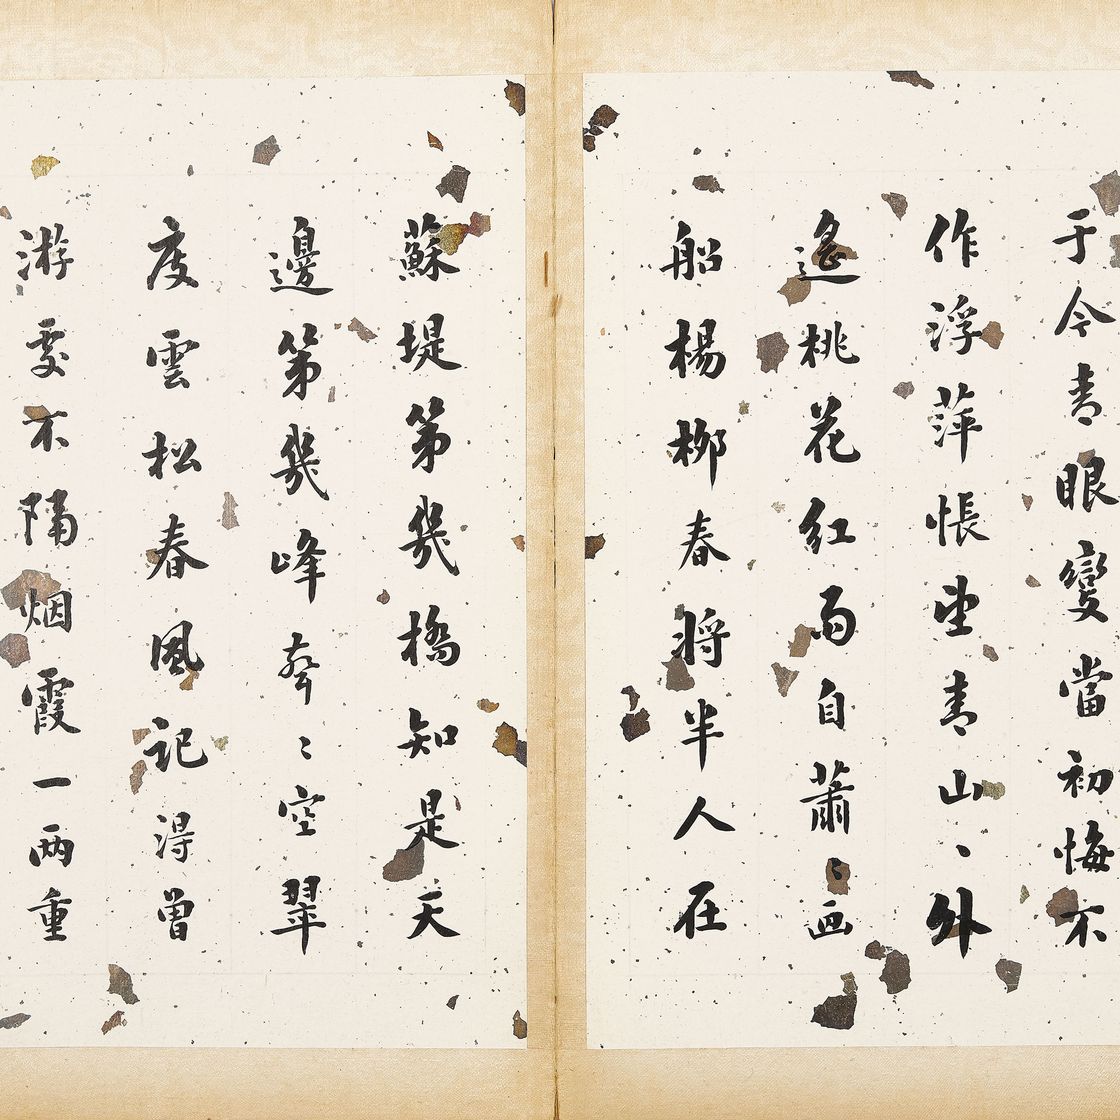 于今青眼變當初悔不
作浮萍悵望青山、外
遙桃花紅雨自蕭〻画
船楊柳春將半人在
蘇堤第幾橋知是天
邊第幾峰奔〻空翠
度雲松春風記得曽
游處不隔烟霞一两重